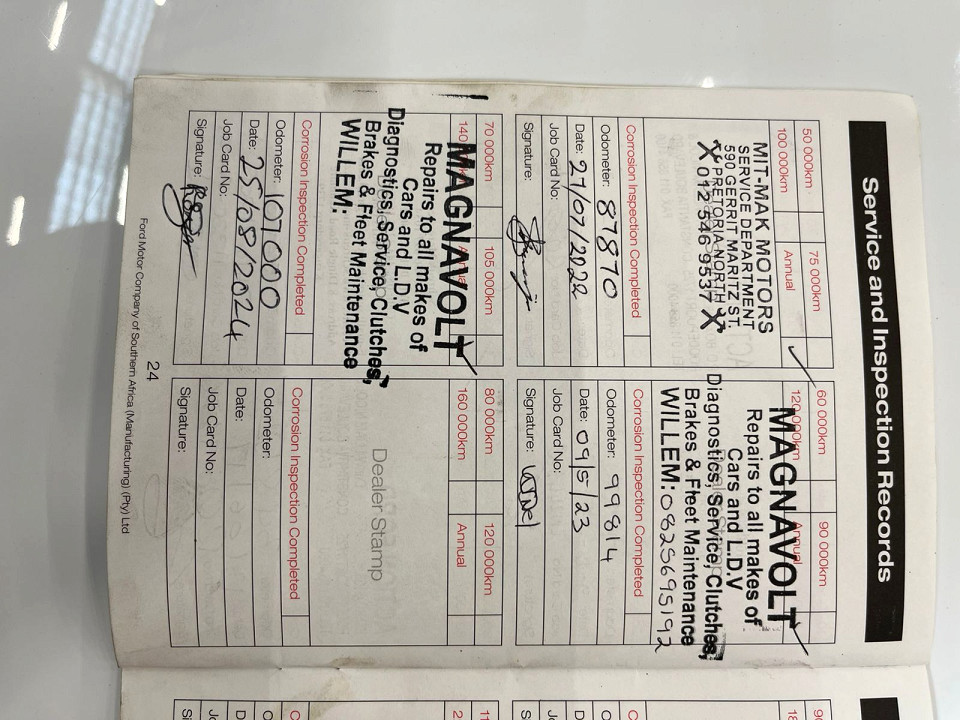 Service and Inspection Records
50 000km 75 000km
100 000km Annual
MIT-MAK MOTORS
SERVICE DEPARTMENT
590 GERRIT MARITZ ST.
PRETORIA-NORTH
X 012 546 9537 X
Corrosion Inspection Completed
Odometer: 87870
Date: 27/07/2022
Job Card No:
Signature:
60 000km 90 000km
120 000km Annual
MAGNAVOLT
Repairs to all makes of
Cars and L.D.V
Diagnostics, Service, Clutches,
Brakes & Fleet Maintenance
WILLEM: 0825695192
Corrosion Inspection Completed
Odometer: 99814
Date: 09/5/23
Job Card No:
Signature:
70 000km 105 000km
MAGNAVOLT
Repairs to all makes of
Cars and L.D.V
Diagnostics, Service, Clutches,
Brakes & Fleet Maintenance
WILLEM:
Corrosion Inspection Completed
Odometer: 107000
Date: 25/08/2024
Job Card No:
Signature:
80 000km 120 000km
160 000km Annual
Dealer Stamp
Corrosion Inspection Completed
Odometer:
Date:
Job Card No:
Signature:
24
Ford Motor Company of Southern Africa (Manufacturing) (Pty) Ltd